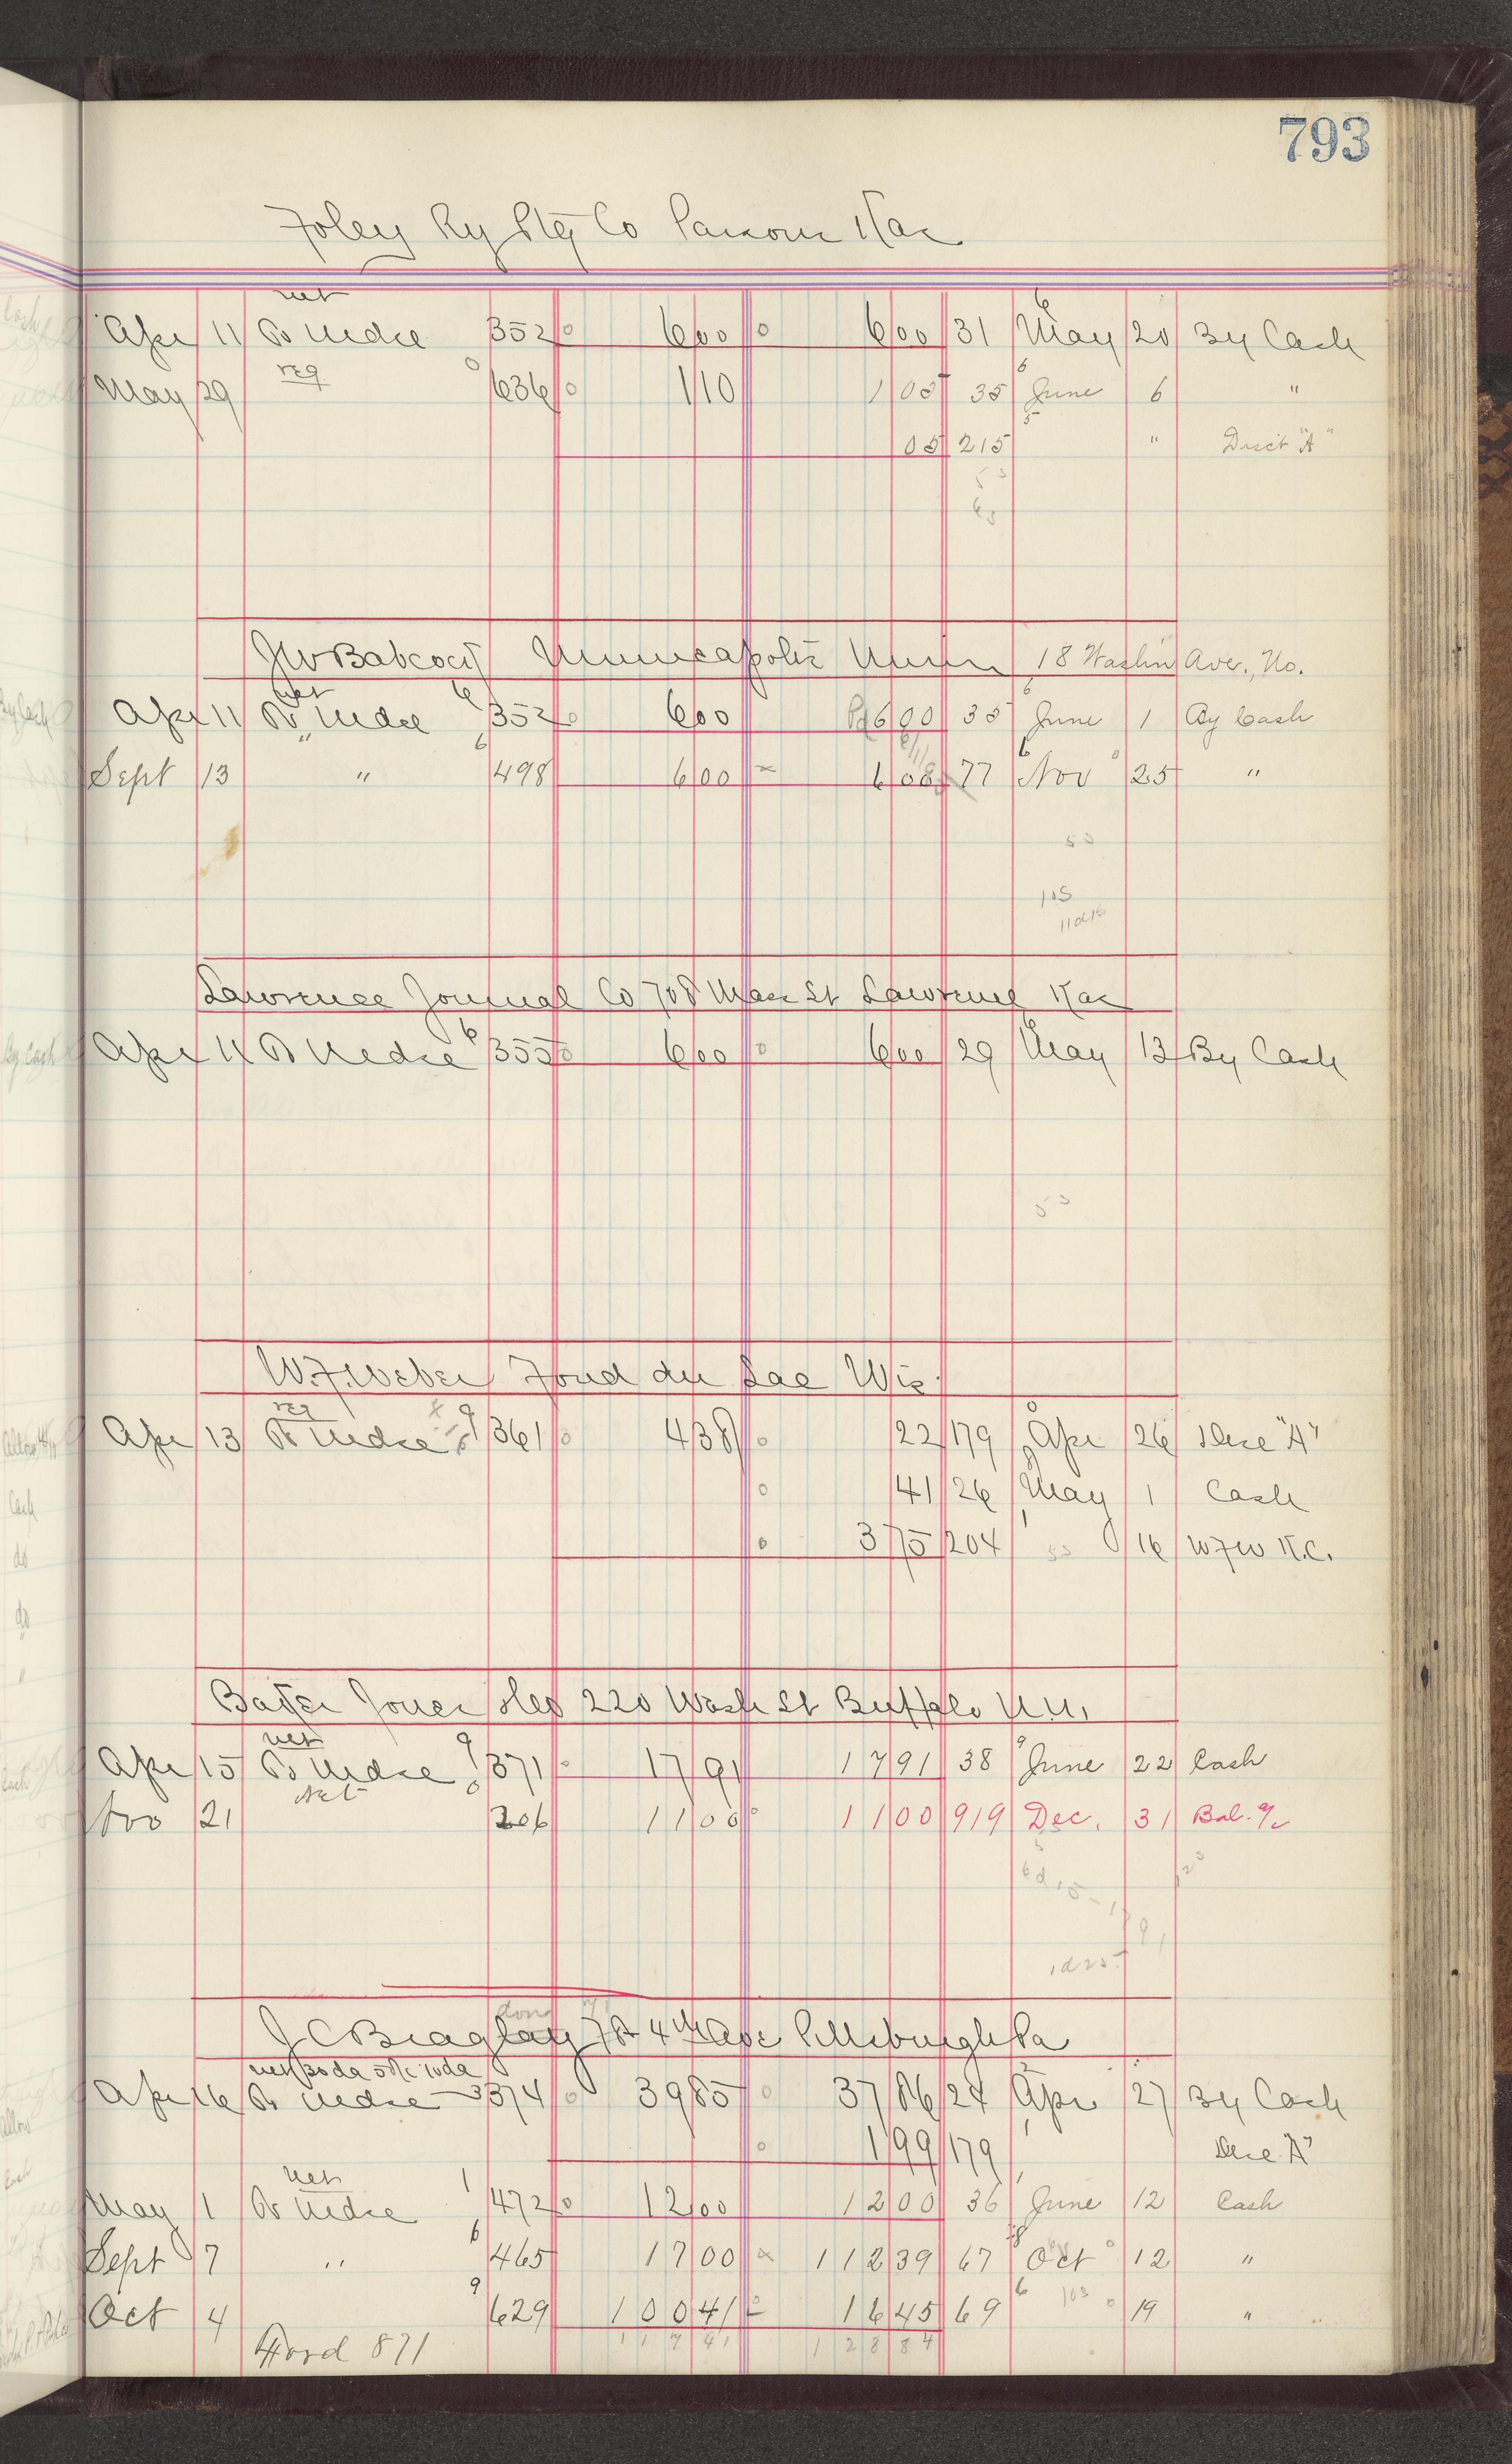 793
Foley Ry Ptg Co Parsons Kas
net
Apr 11 To Mdse 352 6 00 6 00 31 May 20 By Cash
May 29 reg 636 1 10 1 05 35 June 6 "
05 215 " Disct "A"
J W Babcock Minneapolis Minn 18 Washn Ave., No.
net
Apr 11 To Mdse 352 6 00 Pd 6 00 35 June 1 By Cash
Sept 13 " 498 6 00 6 00 77 Nov 25 "
Lawrence Journal Co 708 Mass St Lawrence Kas
Apr 11 To Mdse 355 6 00 6 00 29 May 13 By Cash
W.F. Weber Fond du Lac Wis
reg
Apr 13 To Mdse 361 4 38 22 179 Apr 26 Disc "A"
41 26 May 1 Cash
3 75 204 16 W F W K.C.
Jones 220 Wash St Buffalo N.Y.
net
Apr 15 To Mdse 371 17 91 17 91 38 June 22 Cash
net
Nov 21 206 11 00 11 00 919 Dec. 31 Bal. a/c
J C Bragdon 78 4th Ave Pittsburgh Pa
net 30 da 5% 10 da
Apr 16 To Mdse 374 39 85 37 86 24 Apr 27 By Cash
1 99 179 Disc "A"
net
May 1 To Mdse 472 12 00 12 00 36 June 12 Cash
Sept 7 " 465 17 00 112 39 67 Oct 12 "
Oct 4 629 100 41 16 45 69 19 "
Ford 871 117 41 128 84